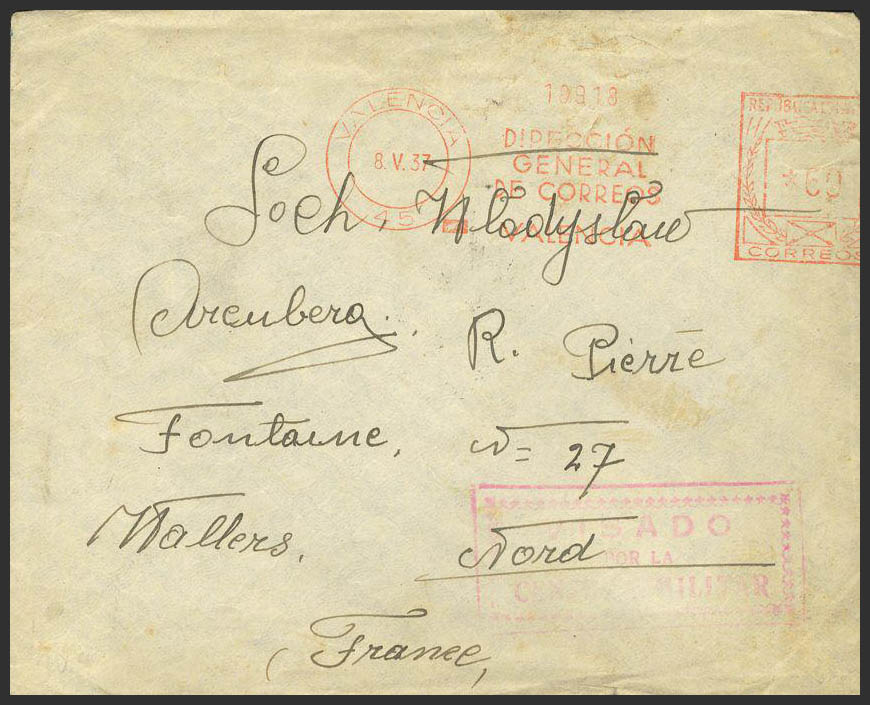 VALENCIA
8.V.37
10918
DIRECCIÓN
GENERAL
DE CORREOS
VALENCIA
*60
CORREOS
Soch, Wladyslaw
Arenberg. R. Pierre
Fontaine, N= 27
Wallers. Nord
(France,
VISADO
POR LA
CENSURA MILITAR